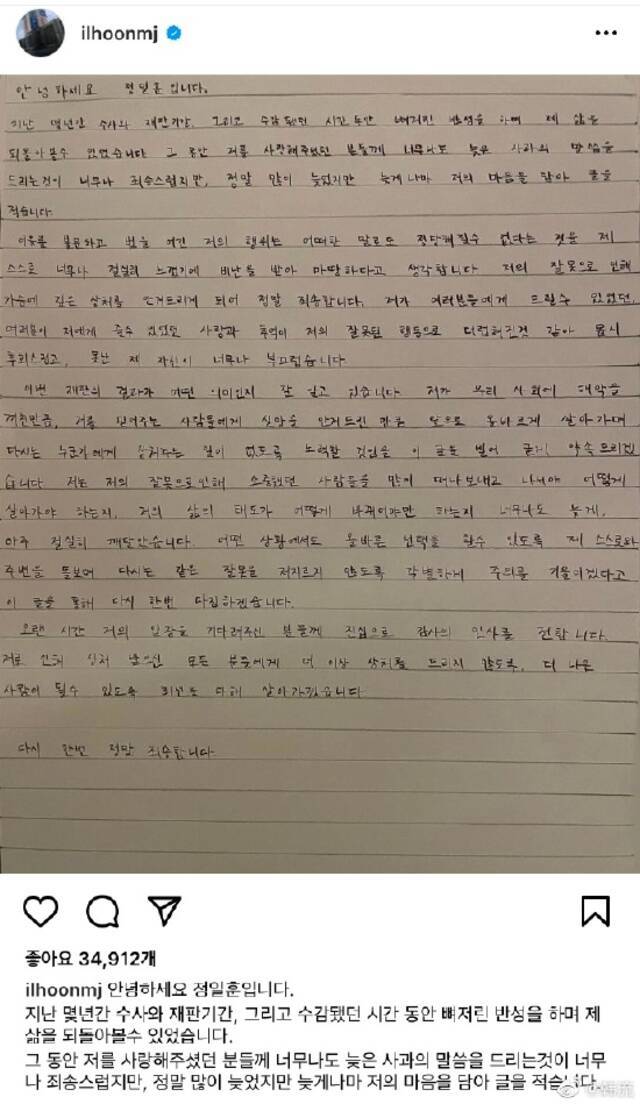 ilhoonmj
안녕하세요 정일훈입니다.
지난 몇년간 수사와 재판기간, 그리고 수감됐던 시간 동안 뼈저린 반성을 하며 제 삶을
되돌아볼수 있었습니다 그 동안 저를 사랑해주셨던 분들께 너무나도 늦은 사과의 말씀을
드리는것이 너무나 죄송스럽지만, 정말 많이 늦었지만 늦게나마 저의 마음을 담아 글을
적습니다.
이유를 불문하고 법을 어긴 저의 행위는 어떠한 말로도 정당화될수 없다는 것을 제
스스로 너무나 절실히 느꼈기에 비난을 받아 마땅하다고 생각합니다 저의 잘못으로 인해
가슴에 깊은 상처를 안겨드리게 되어 정말 죄송합니다. 제가 여러분들에게 드릴수 있었던,
여러분이 저에게 줄수 있었던 사랑과 추억이 저의 잘못된 행동으로 더럽혀진것 같아 몹시
후회스럽고, 못난 제 자신이 너무나 부끄럽습니다
이번 재판의 결과가 어떤 의미인지 잘 알고 있습니다 제가 우리 사회에 해악을
끼친만큼, 저를 믿어주는 사람들에게 실망을 안겨드린 만큼 앞으로 올바르게 살아가며
다시는 누군가에게 상처주는 일이 없도록 노력할 것임을 이 글을 빌어 굳게 약속 드리겠
습니다 저는 저의 잘못으로 인해 소중했던 사람들을 많이 떠나보내고 나서야 어떻게
살아가야 하는지, 저의 삶의 태도가 어떻게 바뀌어야만 하는지 너무나도 늦게,
아주 절실히 깨달았습니다. 어떤 상황에서도 올바른 선택을 할수 있도록 제 스스로와
주변을 돌보며 다시는 같은 잘못을 저지르지 않도록 각별하게 주의를 기울이겠다고
이 글을 통해 다시 한번 다짐하겠습니다.
오랜 시간 저의 입장을 기다려주신 분들께 진심으로 감사의 인사를 전합니다.
저로 인해 상처 받으신 모든 분들에게 더 이상 상처를 드리지 않도록, 더 나은
사람이 될수 있도록 최선을 다해 살아가겠습니다
다시 한번 정말 죄송합니다.
좋아요 34,912개
ilhoonmj 안녕하세요 정일훈입니다.
지난 몇년간 수사와 재판기간, 그리고 수감됐던 시간 동안 뼈저린 반성을 하며 제
삶을 되돌아볼수 있었습니다.
그 동안 저를 사랑해주셨던 분들께 너무나도 늦은 사과의 말씀을 드리는것이 너무
나 죄송스럽지만, 정말 많이 늦었지만 늦게나마 저의 마음을 담아 글을 적습니다.
@韩流